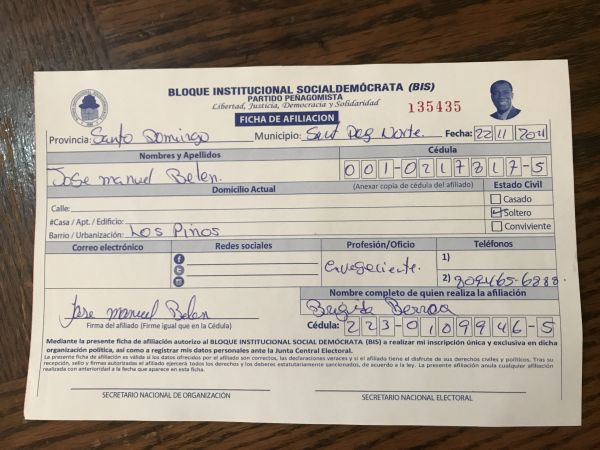 BLOQUE INSTITUCIONAL SOCIALDEMÓCRATA (BIS)
PARTIDO PEÑAGOMISTA
Libertad, Justicia, Democracia y Solidaridad
135435
FICHA DE AFILIACION
Provincia: Santo Domingo Municipio: Norte. Fecha: 22 11
Nombres y Apellidos Cédula
Jose manuel Belen. 001-0217817-5
Domicilio Actual (Anexar copia de cédula del afiliado) Estado Civil
Calle: Casado
#Casa / Apt. / Edificio: Soltero
Barrio / Urbanización: Los Pinos Conviviente
Correo electrónico Redes sociales Profesión/Oficio Teléfonos
1)
2) 809465-6888
Nombre completo de quien realiza la afiliación
Jose manuel Belen Brigida
Firma del afiliado (Firme igual que en la Cédula) Cédula: 223-0109946-5
Mediante la presente ficha de afiliación autorizo al BLOQUE INSTITUCIONAL SOCIAL DEMÓCRATA (BIS) a realizar mi inscripción única y exclusiva en dicha
organización política, así como a registrar mis datos personales ante la Junta Central Electoral.
La presente afiliación es válida si los datos ofrecidos por el afiliado son correctos, las declaraciones veraces y si el afiliado tiene el disfrute de sus derechos civiles y políticos. Tras su
recepción, sello y firmas autorizadas el afiliado ejercerá todos los derechos y los deberes estatutariamente sancionados, de acuerdo a la ley. La presente afiliación anula cualquier afiliación
realizada con anterioridad a la fecha que aparece en esta ficha.
SECRETARIO NACIONAL DE ORGANIZACIÓN SECRETARIO NACIONAL ELECTORAL